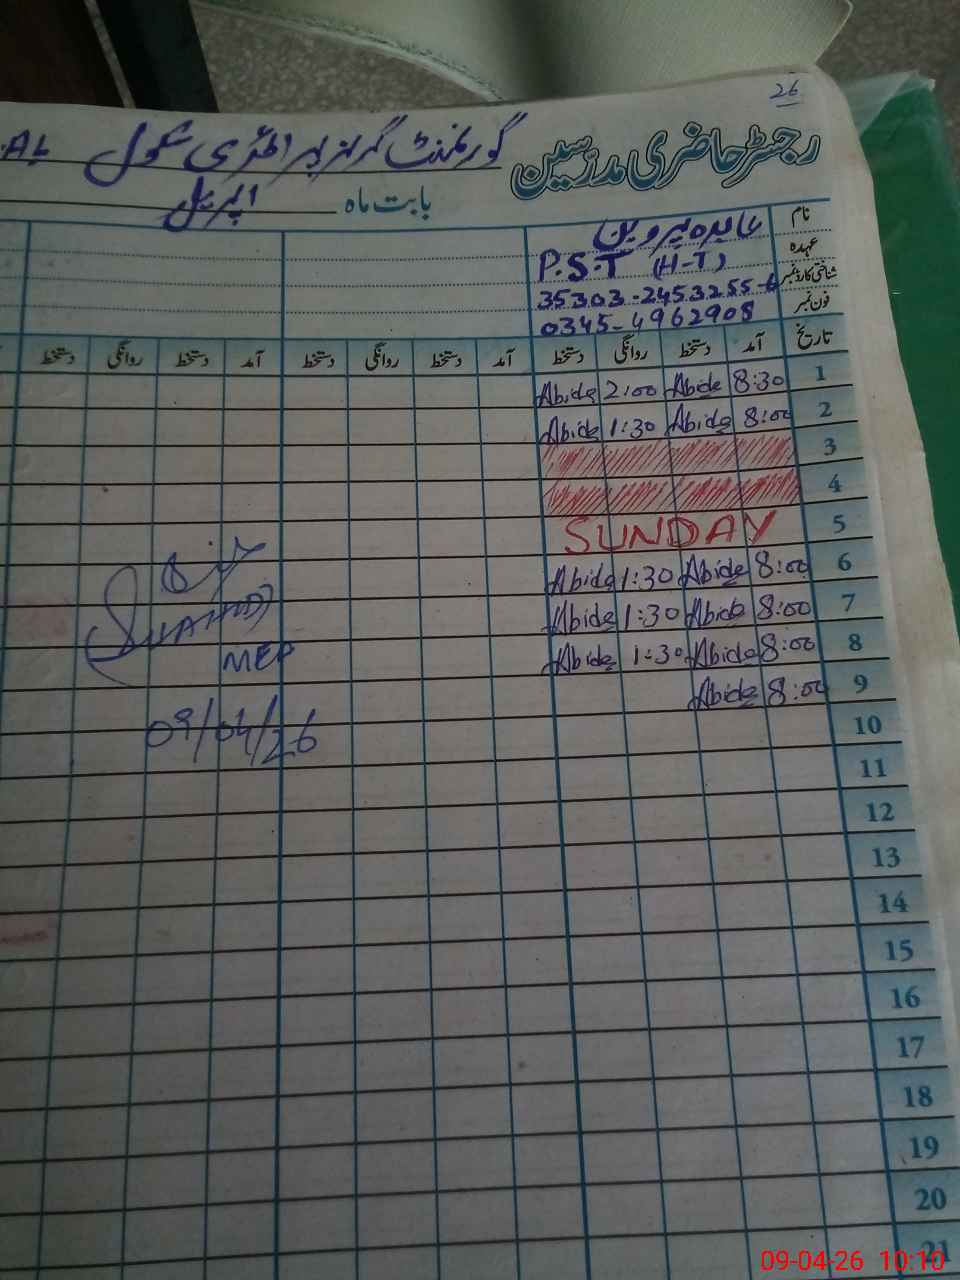 26
رجسٹر حاضری مدرسین گورنمنٹ گرلز پرائمری سکول
بابت ماہ اپریل
نام عابدہ پروین
عہدہ P.S.T (H-T)
شناختی کارڈ نمبر 35303-2453255-6
فون نمبر 0345-4962908
تاریخ آمد دستخط روانگی دستخط آمد دستخط روانگی دستخط آمد دستخط روانگی دستخط
1 8:30 Abide 2:00 Abide
2 8:00 Abide 1:30 Abide
3
4
5 SUNDAY
6 8:00 Abide 1:30 Abide
7 8:00 Abide 1:30 Abide
8 8:00 Abide 1:30 Abide
9 8:00 Abide
MEP
09/04/26
10
11
12
13
14
15
16
17
18
19
20
21
09-04-26 10:10